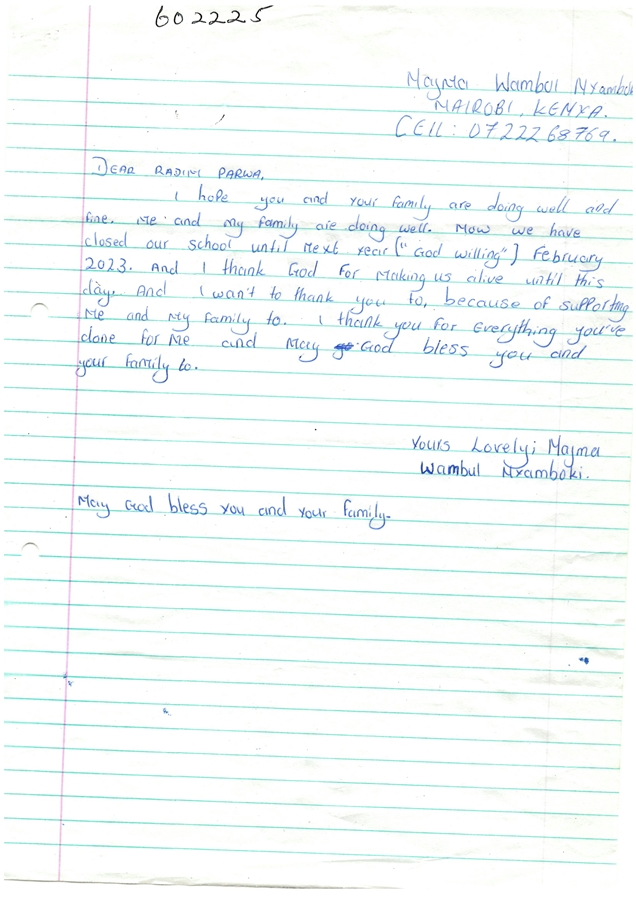 602225
Maynta Wambul Nyambok
NAIROBI, KENYA.
CELL: 0722268769.
DEAR RADIM PARWA,
I hope you and your family are doing well and
fine. Me and my family are doing well. Now we have
closed our school until Next Year ("God willing") February
2023. And I thank God for making us alive until this
day. And I want to thank you to, because of supporting
Me and my family to. I thank you for everything you've
done for Me and May God bless you and
your family to.
Yours Lovely; Majma
Wambul Nyamboki.
May God bless you and your family.